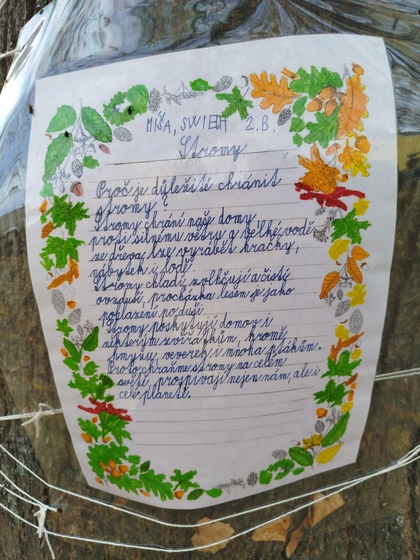 MÍŠA, SWIEDA 2.B.
Stromy
Proč je důležité chránit
stromy
Stromy chrání naše domy
proti silnému větru a velké vodě
ze dřeva lze vyrábět hračky,
nábytek i lodě.
Stromy chladí zvlhčují a čistí
ovzduší, procházka lesem je jako
pohlazení po duši.
Stromy poskytují domov i
některým zvířátkům, kromě
hmyzu, veverek i mnoha ptákům.
Proto chraňme stromy na celém
světě, prospívají nejen nám, ale i
celé planetě.